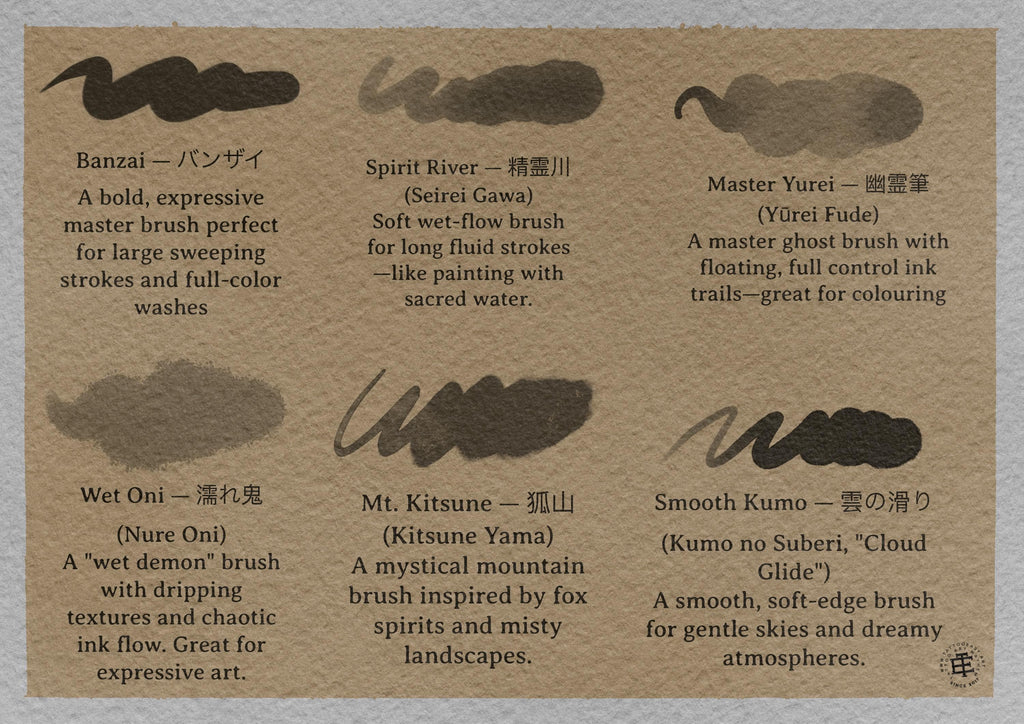 Banzai — バンザイ
A bold, expressive
master brush perfect
for large sweeping
strokes and full-color
washes
Spirit River — 精霊川
(Seirei Gawa)
Soft wet-flow brush
for long fluid strokes
—like painting with
sacred water.
Master Yurei — 幽霊筆
(Yūrei Fude)
A master ghost brush with
floating, full control ink
trails—great for colouring
Wet Oni — 濡れ鬼
(Nure Oni)
A "wet demon" brush
with dripping
textures and chaotic
ink flow. Great for
expressive art.
Mt. Kitsune — 狐山
(Kitsune Yama)
A mystical mountain
brush inspired by fox
spirits and misty
landscapes.
Smooth Kumo — 雲の滑り
(Kumo no Suberi, "Cloud
Glide")
A smooth, soft-edge brush
for gentle skies and dreamy
atmospheres.